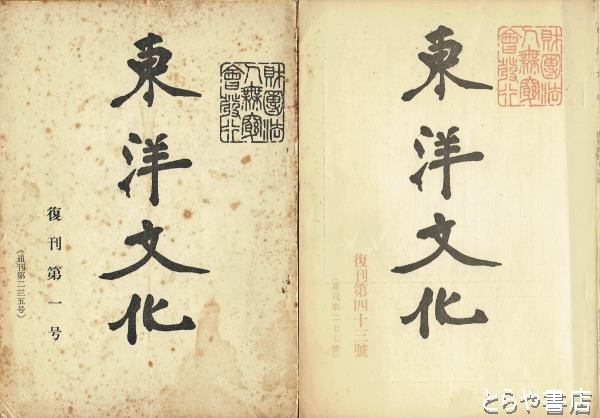 東洋文化
財團法
人無窮
會發行
復刊第一号
（通刊第二三五号）
東洋文化
財團法
人無窮
會發行
復刊第四十三號
（通刊第二七七號）
とらや書店